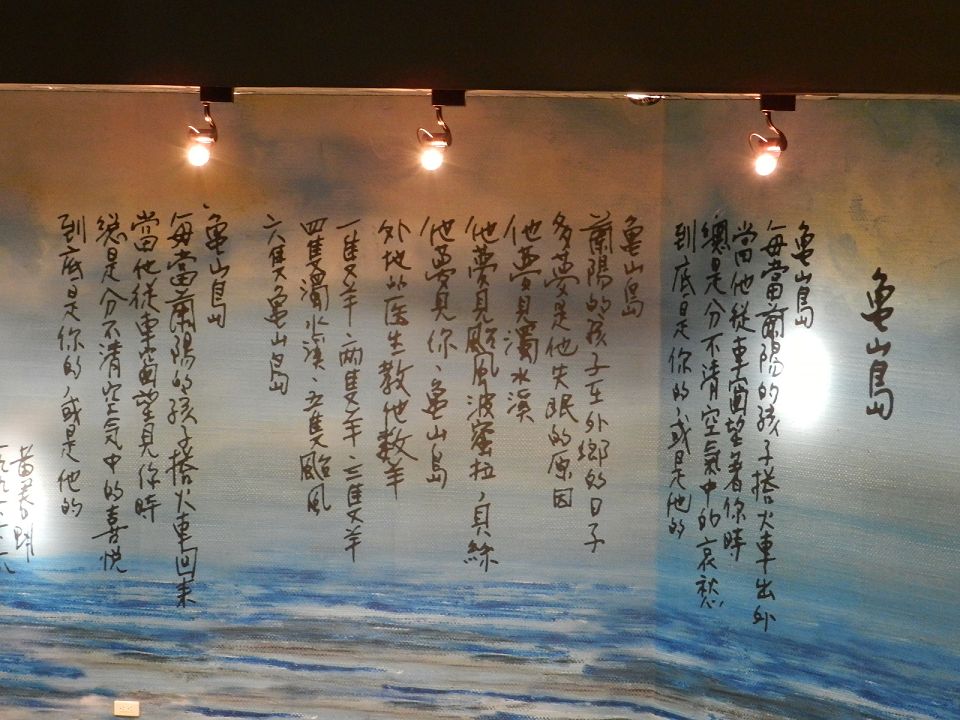 亀山島
亀山島
每當蘭陽的孩子搭火車出外
當他從車窗望著你時
總是分不清空氣中的哀愁
到底是你的，或是他的
亀山島
蘭陽的孩子在外鄉的日子
多夢是他失眠的原因
他夢見濁水溪
他夢見颱風波蜜拉，貝絲
他夢見你，亀山島
外地的医生教他數羊
一隻羊、兩隻羊、三隻羊
四隻濁水溪、五隻颱風
六隻亀山島
亀山島
每當蘭陽的孩子搭火車回來
當他從車窗望見你時
總是分不清空氣中的喜悅
到底是你的，或是他的
黃春明